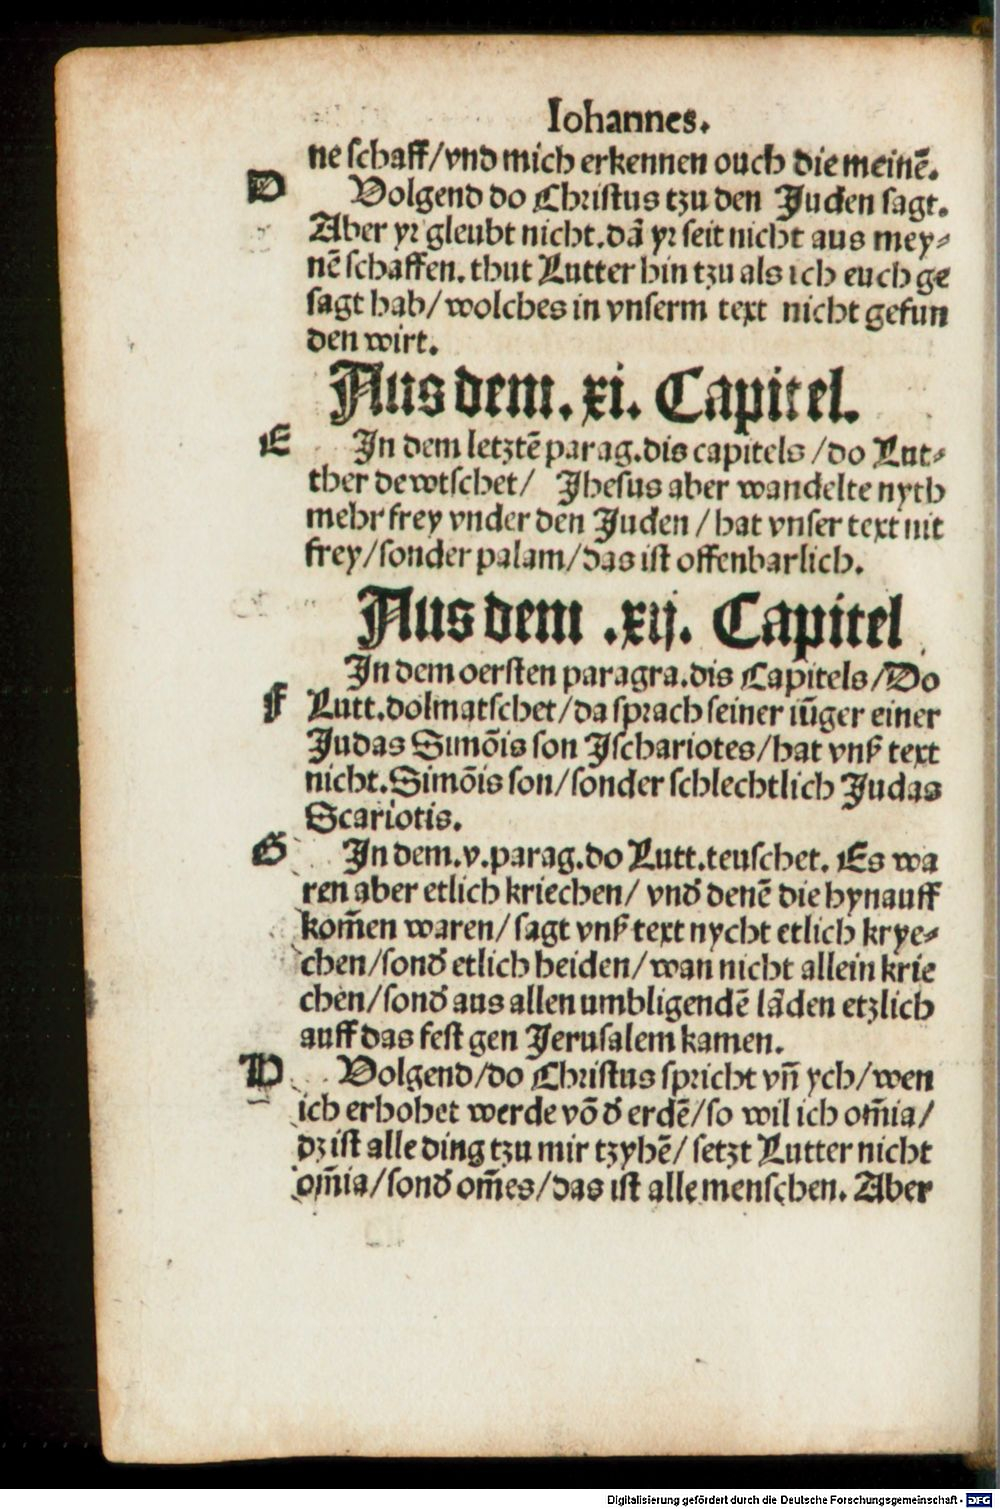 Iohannes.
ne schaff/vnd mich erkennen ouch die meinē.
D Volgend do Christus tzu den Juden sagt.
Aber yr gleubt nicht.dā yr seit nicht aus mey⸗
nē schaffen.thut Lutter hin tzu als ich euch ge
sagt hab/wolches in vnserm text nicht gefun
den wirt.
Aus dem.xi. Capitel.
E In dem letztē parag.dis capitels/do Lut⸗
ther dewtschet/ Jhesus aber wandelte nyth
mehr frey vnder den Juden/hat vnser text nit
frey/sonder palam/das ist offenbarlich.
Aus dem .xij. Capitel
In dem oersten paragra.dis Capitels/Do
F Lutt.dolmatschet/da sprach seiner iūger einer
Judas Simōis son Jschariotes/hat vnß text
nicht.Simōis son/sonder schlechtlich Judas
Scariotis.
G In dem.v.parag.do Lutt.teuschet. Es wa
ren aber etlich kriechen/ vnd̕ denē die hynauff
kom̄en waren/sagt vnß text nycht etlich krye⸗
chen/sond̕ etlich heiden/wan nicht allein krie
chen/sond̕ aus allen umbligendē lādēn etzlich
auff das fest gen Jerusalem kamen.
H Volgend/do Christus spricht vn̄ ych/wen
ich erhohet werde vō d̕ erdē/so wil ich om̄ia/
dz ist alle ding tzu mir tzyhē/setzt Lutter nicht
om̄ia/sond̕ om̄es/das ist alle menschen. Aber
Digitalisierung gefördert durch die Deutsche Forschungsgemeinschaft - DFG